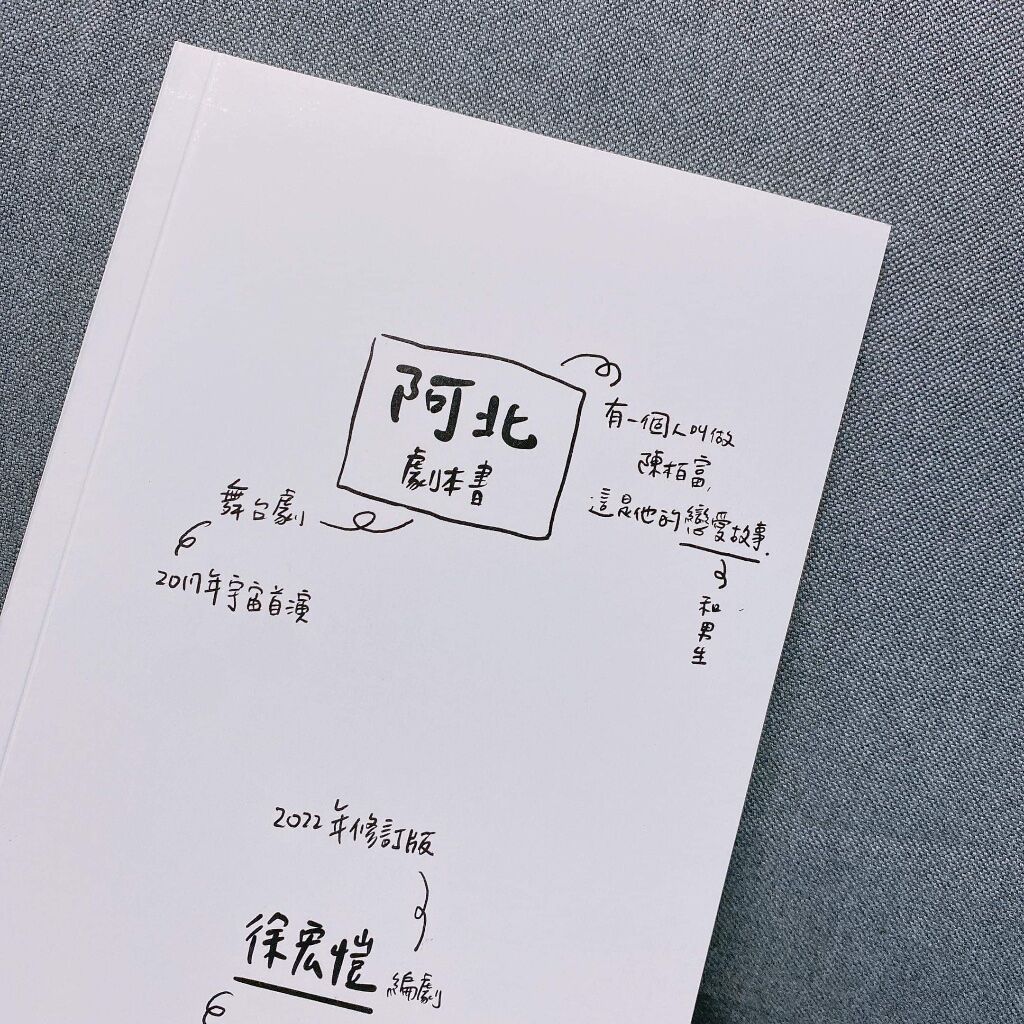 阿北
劇本書
有一個人叫做
陳柏富,
這是他的戀愛故事.
和男生
舞台劇
2017年宇宙首演
2022年修訂版
徐宏愷 編劇